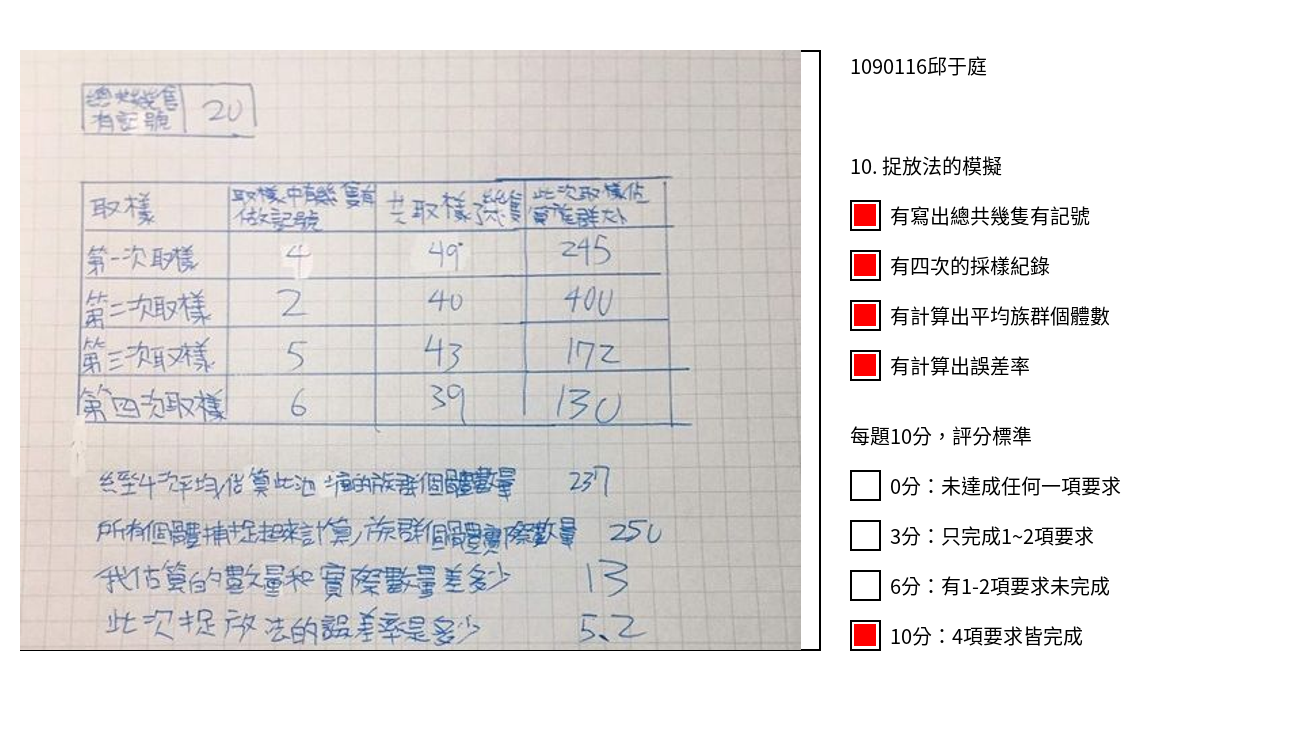 總共幾隻
有記號
20
取樣
取樣中有幾隻有
做記號
共取樣幾隻
此次取樣估
算族群大小
第一次取樣 4 49 245
第二次取樣 2 40 400
第三次取樣 5 43 172
第四次取樣 6 39 130
經至4次平均估算此池塘的族群個體數量 237
所有個體捕捉起來計算,族群個體實際數量 250
我估算的數量和實際數量差多少 13
此次捉放法的誤差率是多少 5.2
1090116邱于庭
10. 捉放法的模擬
有寫出總共幾隻有記號
有四次的採樣紀錄
有計算出平均族群個體數
有計算出誤差率
每題10分，評分標準
0分：未達成任何一項要求
3分：只完成1~2項要求
6分：有1-2項要求未完成
10分：4項要求皆完成